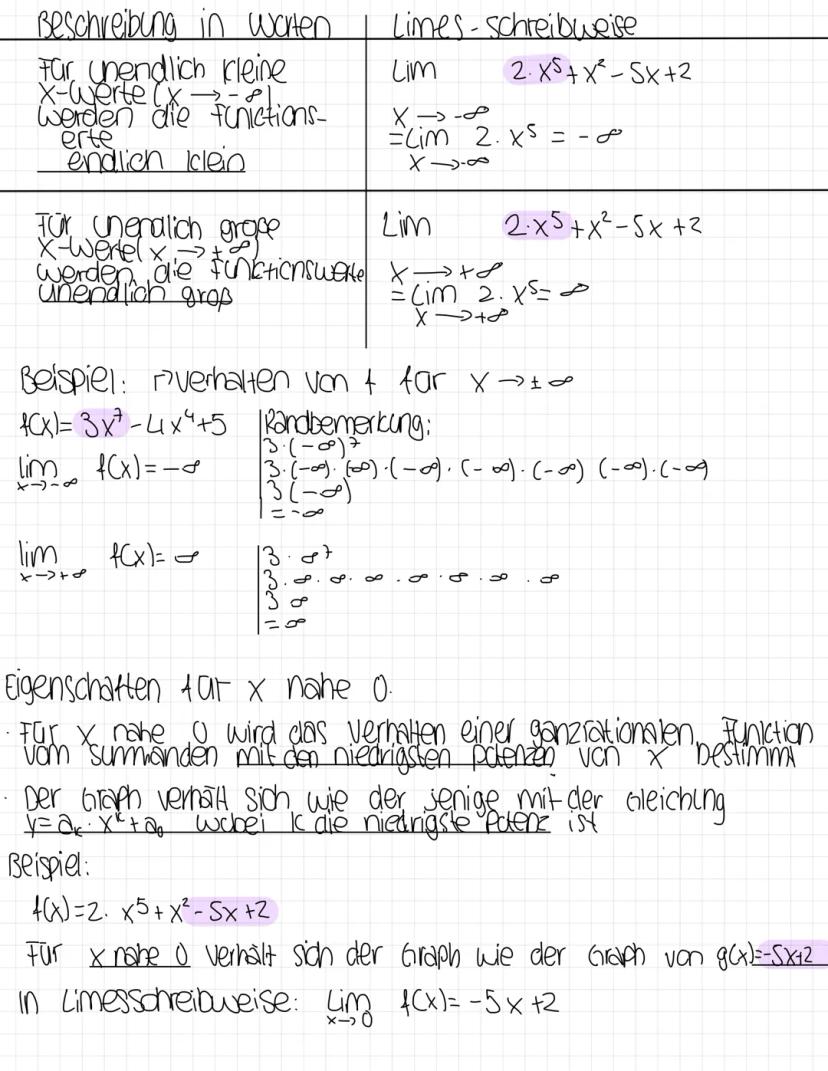 Beschreibung in Worten
Limes-schreibweise
Für unendlich kleine
x-Werte (x → -∞)
werden die functions-
erte
endlich klein
Lim 2·x⁵+x²-5x+2
x → -∞
=Lim 2·x⁵ = -∞
x → -∞
Für unendlich große
x-Werte( x → +∞)
werden die funktionswerte
unendlich groß
Lim 2·x⁵+x²-5x+2
x → +∞
=Lim 2·x⁵= ∞
x → +∞
Beispiel: ↱verhalten von f für x → ± ∞
f(x)= 3x⁷-4x⁴+5
lim f(x)=-∞
x→-∞
Randbemerkung:
3·(-∞)⁷
3·(-∞)·(-∞)·(-∞)·(-∞)·(-∞) (-∞)·(-∞)
3(-∞)
=-∞
lim f(x)= ∞
x→+∞
3·∞⁷
3·∞·∞·∞·∞·∞·∞·∞
3 ∞
=∞
Eigenschaften für x nahe 0.
· Für x nahe 0 wird das Verhalten einer ganzrationalen Function
vom Summanden mit den niedrigsten potenzen von x bestimmt
· Der Graph verhält sich wie der jenige mit der Gleichung
y=aₖ·xᵏ+a₀ wobei k die niedrigste Potenz ist
Beispiel:
f(x)=2·x⁵+x²-5x+2
Für x nahe 0 verhält sich der Graph wie der Graph von g(x)=-5x+2
in Limesschreibweise: Lim f(x)= -5x+2
x→0